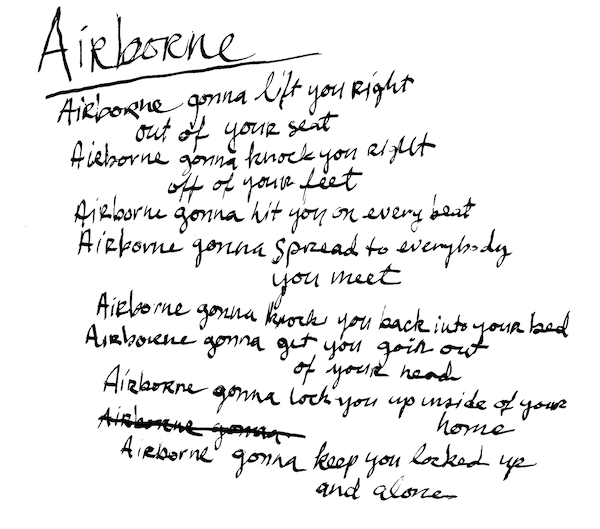 Airborne
Airborne gonna lift you right
out of your seat
Airborne gonna knock you right
off of your feet
Airborne gonna hit you on every beat
Airborne gonna spread to everybody
you meet
Airborne gonna knock you back into your bed
Airborne gonna get you goin out
of your head
Airborne gonna lock you up inside of your
home
Airborne gonna
Airborne gonna keep you locked up
and alone